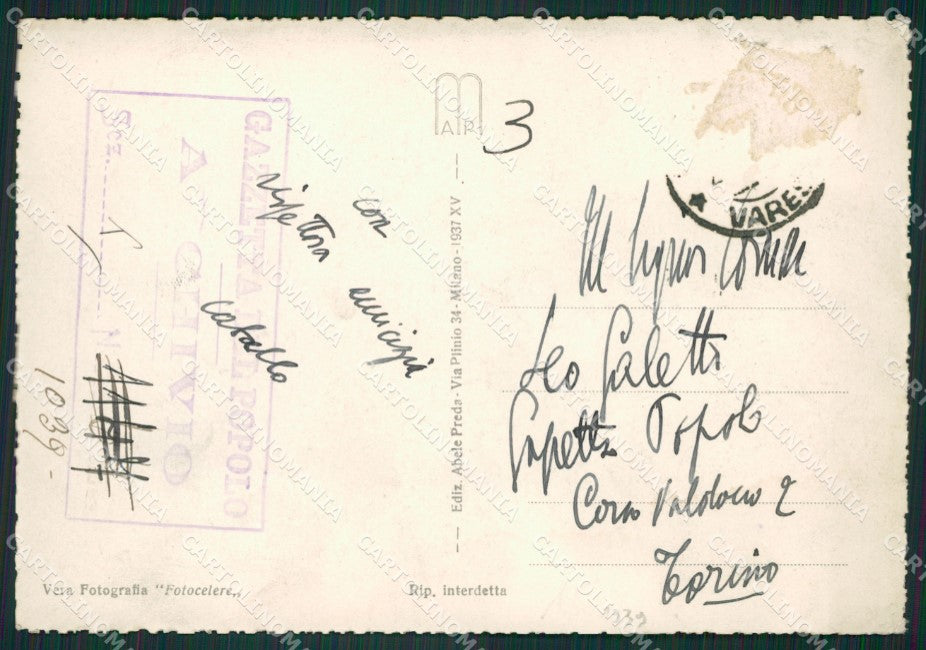 MAP
3
VARES
con amicizia
Leo Galetti
Gazzetta Popolo
Corso Valdocco 2
Torino
GAZZETTA DEL POPOLO
ARCHIVIO
Sez.
N
1039-
Ediz. Abele Preda - Via Plinio 34 - Milano - 1937 XV
Vera Fotografia "Fotocelere"
Rip. interdetta
1939
CARTOLINOMANIA